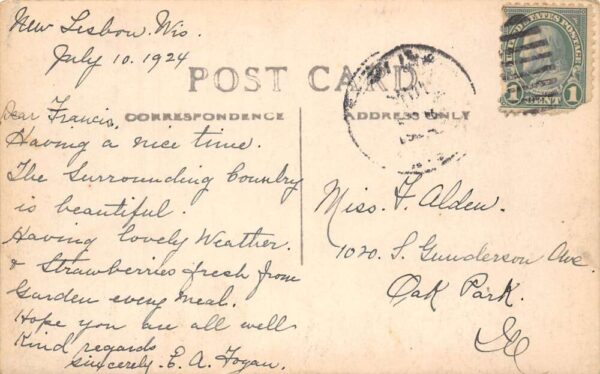 New Lisbon. Wis.
July 10. 1924
POST CARD
CORRESPONDENCE
ADDRESS ONLY
Dear Francis,
Having a nice time.
The Surrounding Country
is beautiful.
Having lovely Weather.
& Strawberries fresh from
Garden every meal.
Hope you are all well
Kind regards
Sincerely. E. A. Fogan.
UNITED STATES POSTAGE
1 CENT 1
Miss. F. Alden.
1020. S. Gunderson Ave.
Oak Park.
Ill